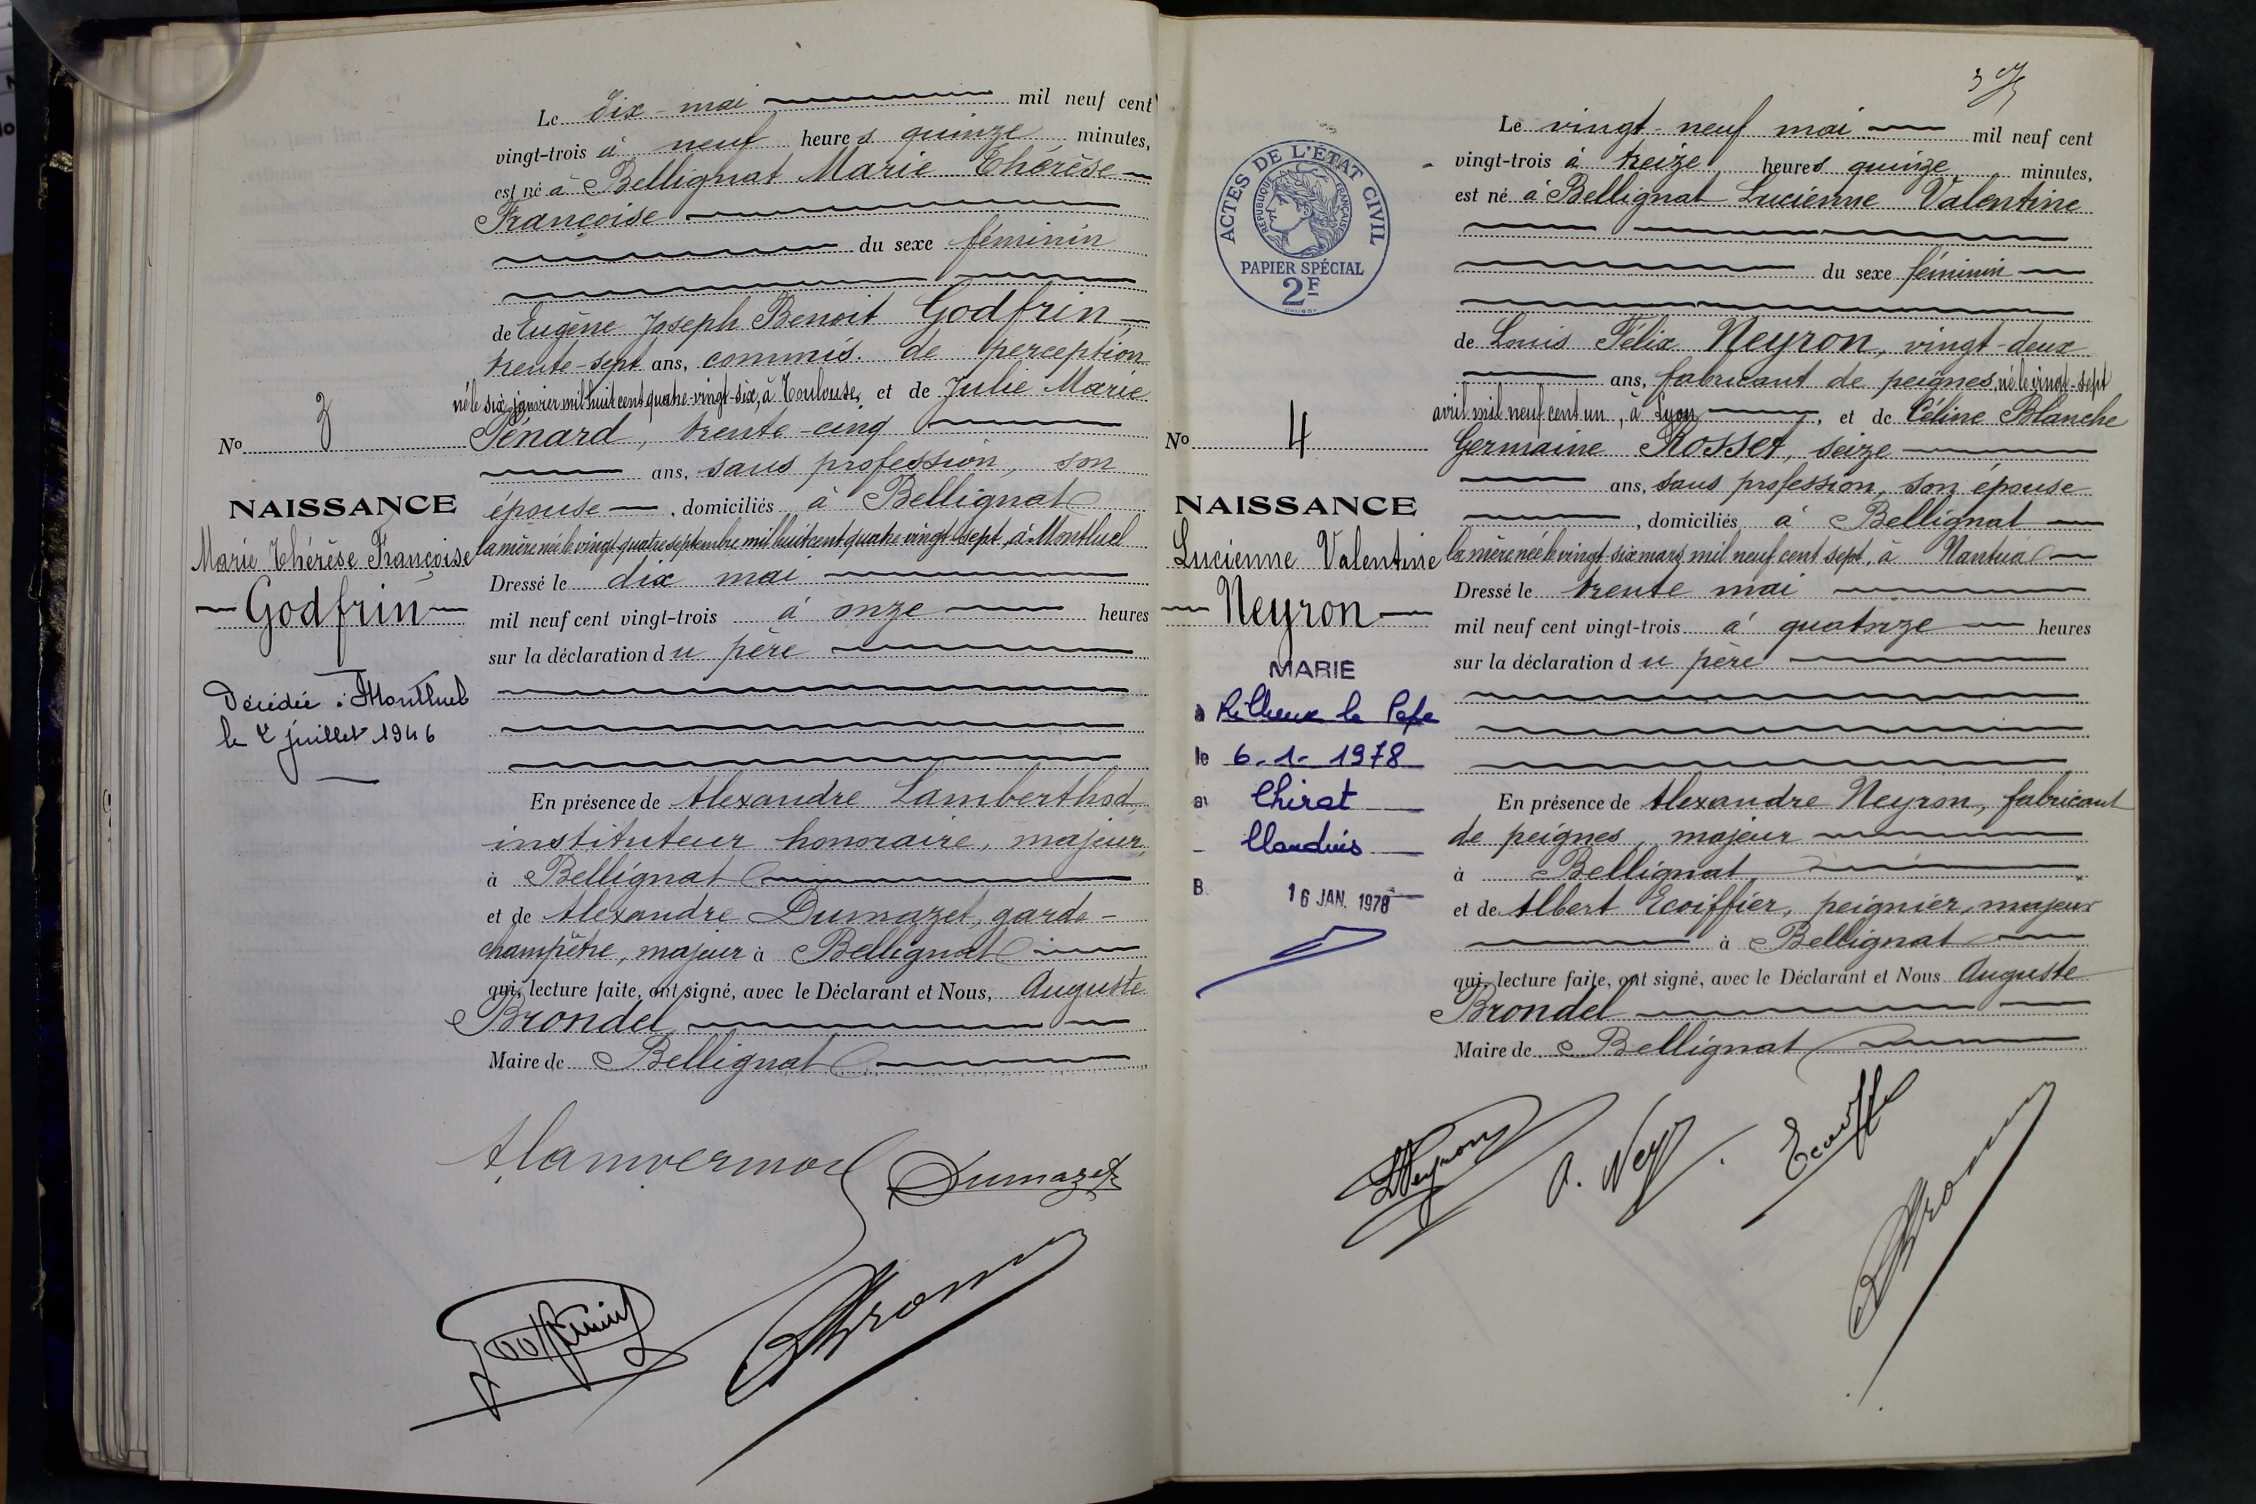 Le dix mai mil neuf cent
vingt-trois à neuf heures quinze minutes,
est né à Bellignat Marie Thérèse
Françoise
du sexe féminin
de Eugène Joseph Benoit Godfrin,
trente-sept ans, commis de perception
né le six janvier mil huit cent quatre-vingt-six, à Toulouse, et de Julie Marie
Pénard, trente-cinq
ans, sans profession, son
épouse, domiciliés à Bellignat
la mère née le vingt quatre septembre mil huit cent quatre vingt sept, à Montluel
Dressé le dix mai
mil neuf cent vingt-trois à onze heures
sur la déclaration du père
En présence de Alexandre Lamberthod,
instituteur honoraire, majeur,
à Bellignat
et de Alexandre Dumazet, garde-
champêtre, majeur à Bellignat
qui, lecture faite, ont signé, avec le Déclarant et Nous, Auguste
Brondel
Maire de Bellignat
No 3
NAISSANCE
Marie Thérèse Françoise
Godfrin
Décédée à Montluel
le 2 juillet 1946
Dumazet
ACTES DE L'ÉTAT CIVIL
RÉPUBLIQUE FRANÇAISE
PAPIER SPÉCIAL
2F
No 4
NAISSANCE
Lucienne Valentine
Neyron
MARIE
à Rillieux la Pape
le 6-1-1978
av Chirat
Claudius
B. 16 JAN. 1978
Le vingt-neuf mai mil neuf cent
vingt-trois à treize heures quinze minutes,
est né à Bellignat Lucienne Valentine
du sexe féminin
de Louis Félix Neyron, vingt-deux
ans, fabricant de peignes, né le vingt-sept
avril mil neuf cent un, à Lyon, et de Céline Blanche
Germaine Rosset, seize
ans, sans profession, son épouse
, domiciliés à Bellignat
la mère née le vingt six mars mil neuf cent sept, à Nantua
Dressé le trente mai
mil neuf cent vingt-trois à quatorze heures
sur la déclaration du père
En présence de Alexandre Neyron, fabricant
de peignes, majeur
à Bellignat
et de Albert Ecoiffier, peignier, majeur
à Bellignat
qui, lecture faite, ont signé, avec le Déclarant et Nous Auguste
Brondel
Maire de Bellignat
LNeyron A. Ney